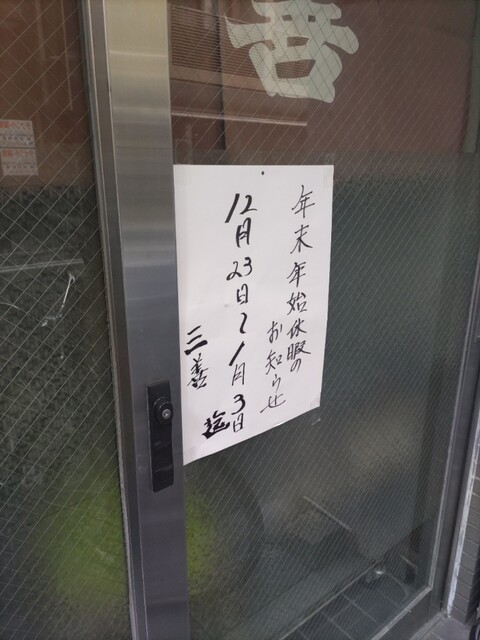 年末年始休暇の
お知らせ
12月23日~1月3日
迄
三善